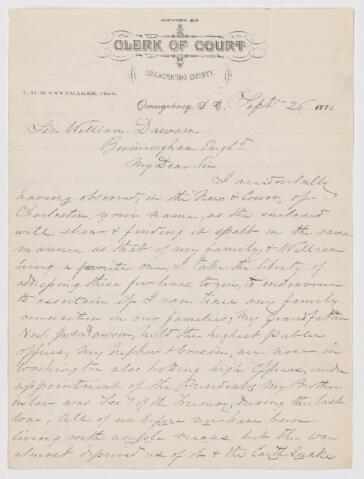 OFFICE OF
CLERK OF COURT
ORANGEBURG COUNTY.
Orangeburg, S. C., Sept 26 1886
Sir William Dawson
Birmingham Engld
My Dear Sir
I accidentally
having observed, in the News & Cour, of
Charleston, your name, as the enclosed
will show, & finding it spelt in the same
manner as that of my family, & William
being a favorite one, I take the liberty of
addressing these few lines to you, to endeavour
to ascertain if I can have any family
connection in our families, My Grandfather
Hon. Dawson, held the highest public
offices, My Nephew & Cousin, are now in
Washington also holding high offices, under
appointment of the President, My Brother
in law was Secy of the Treasury, during the last
war, All of us before have been
living with ample means, but the war
almost deprived us of it & the Earth Quake